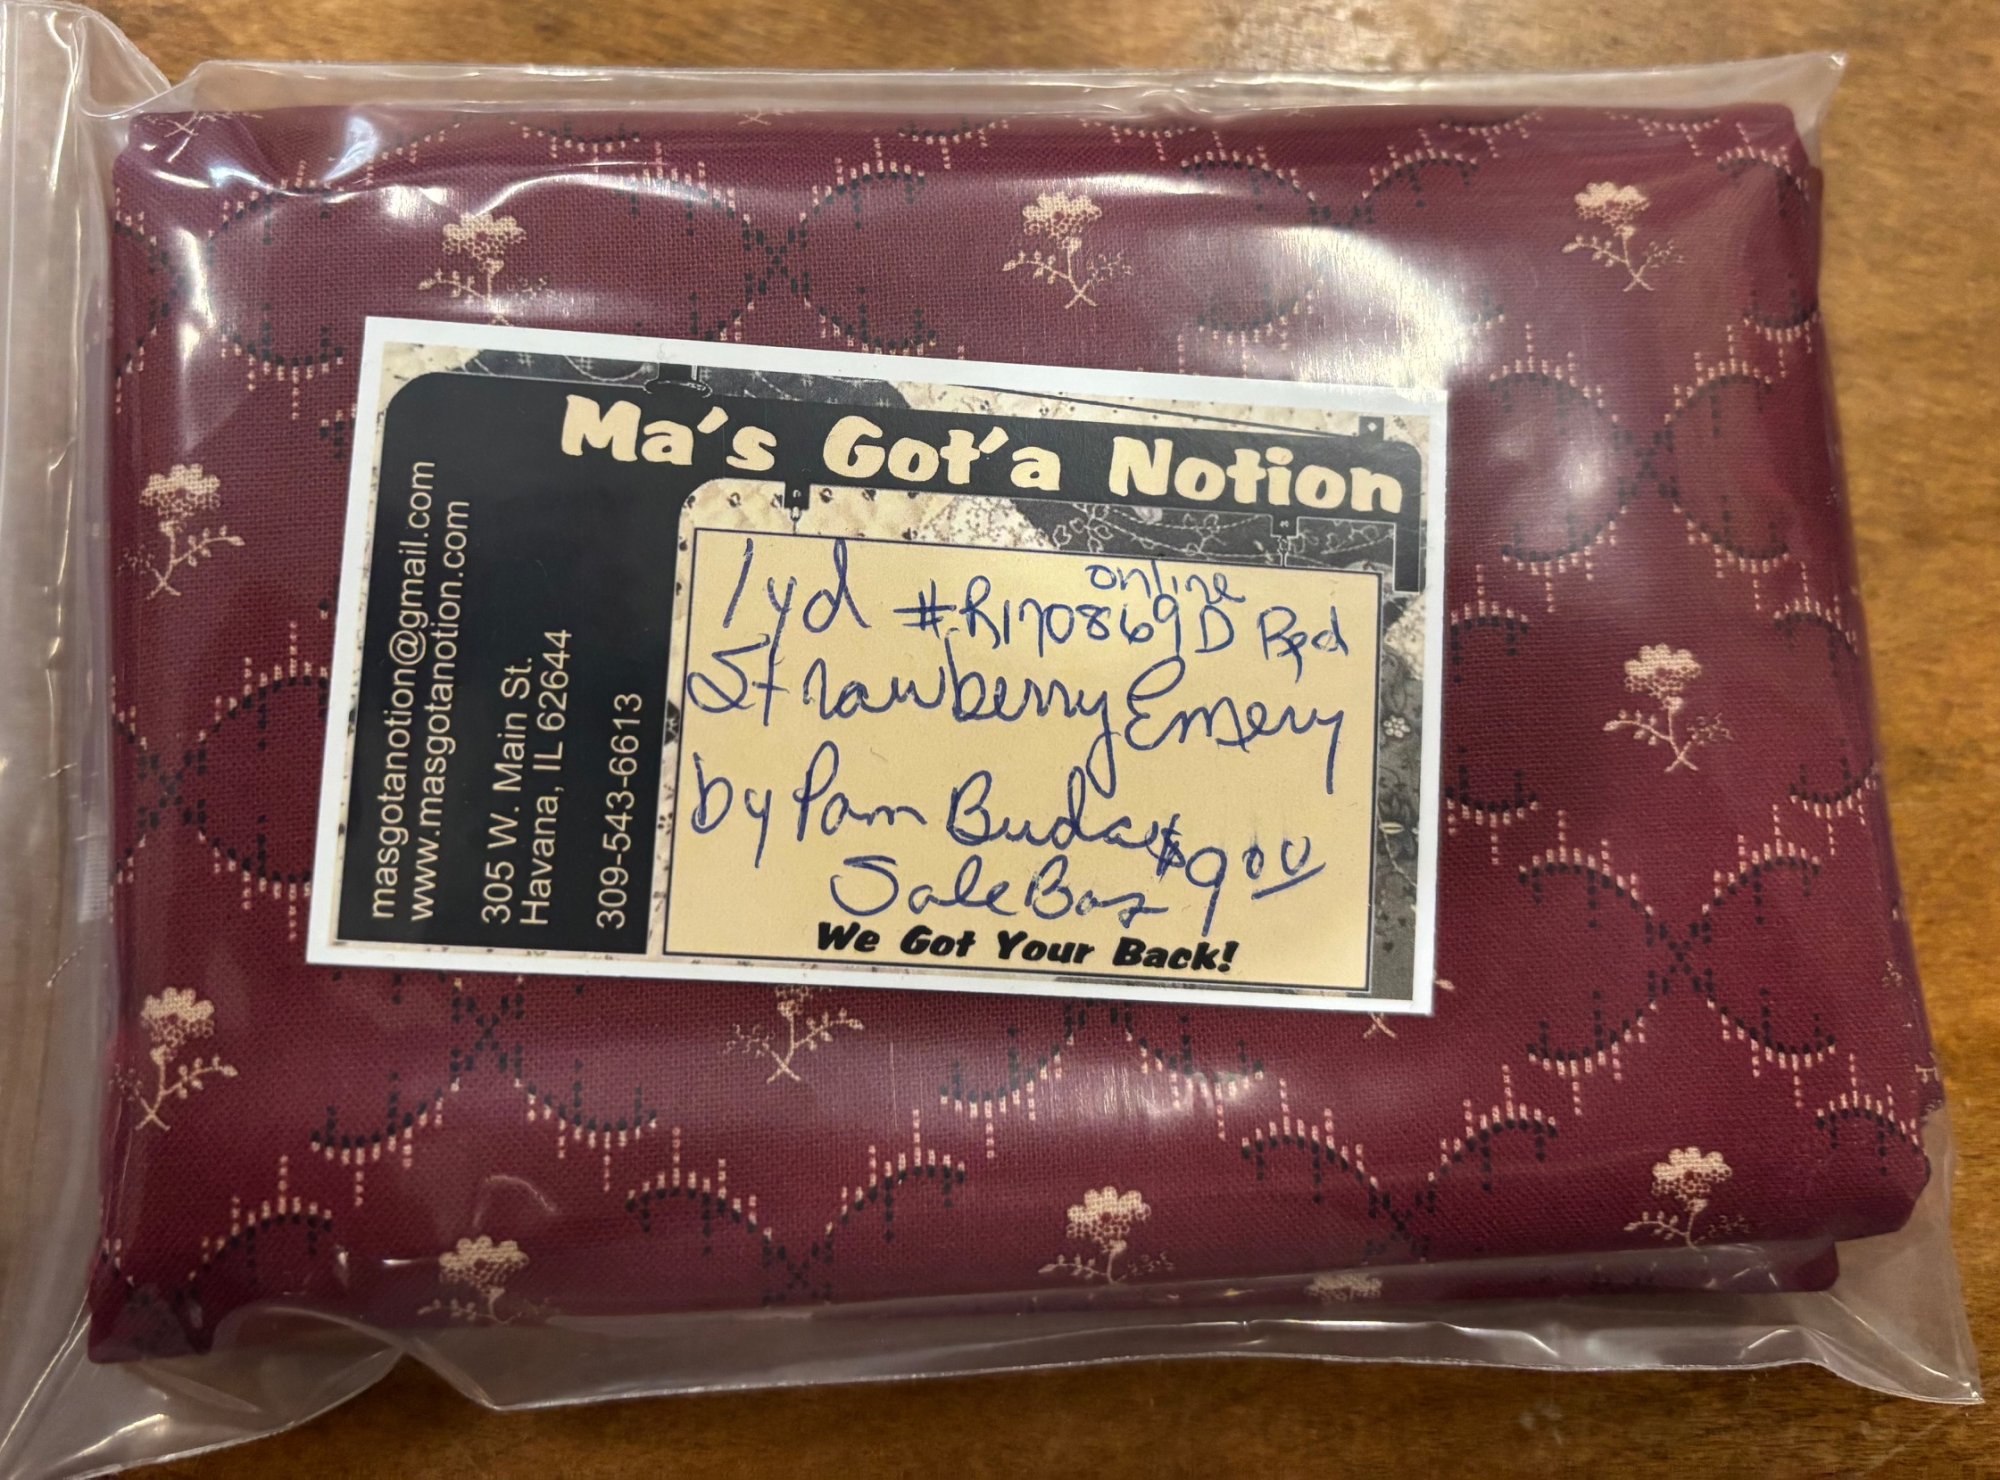 Ma's Got'a Notion
masgotanotion@gmail.com
www.masgotanotion.com
305 W. Main St.
Havana, IL 62644
309-543-6613
online
1yd #R170869D Red
Strawberry Emery
by Pam Budaes $9.00
Sale Box
We Got Your Back!